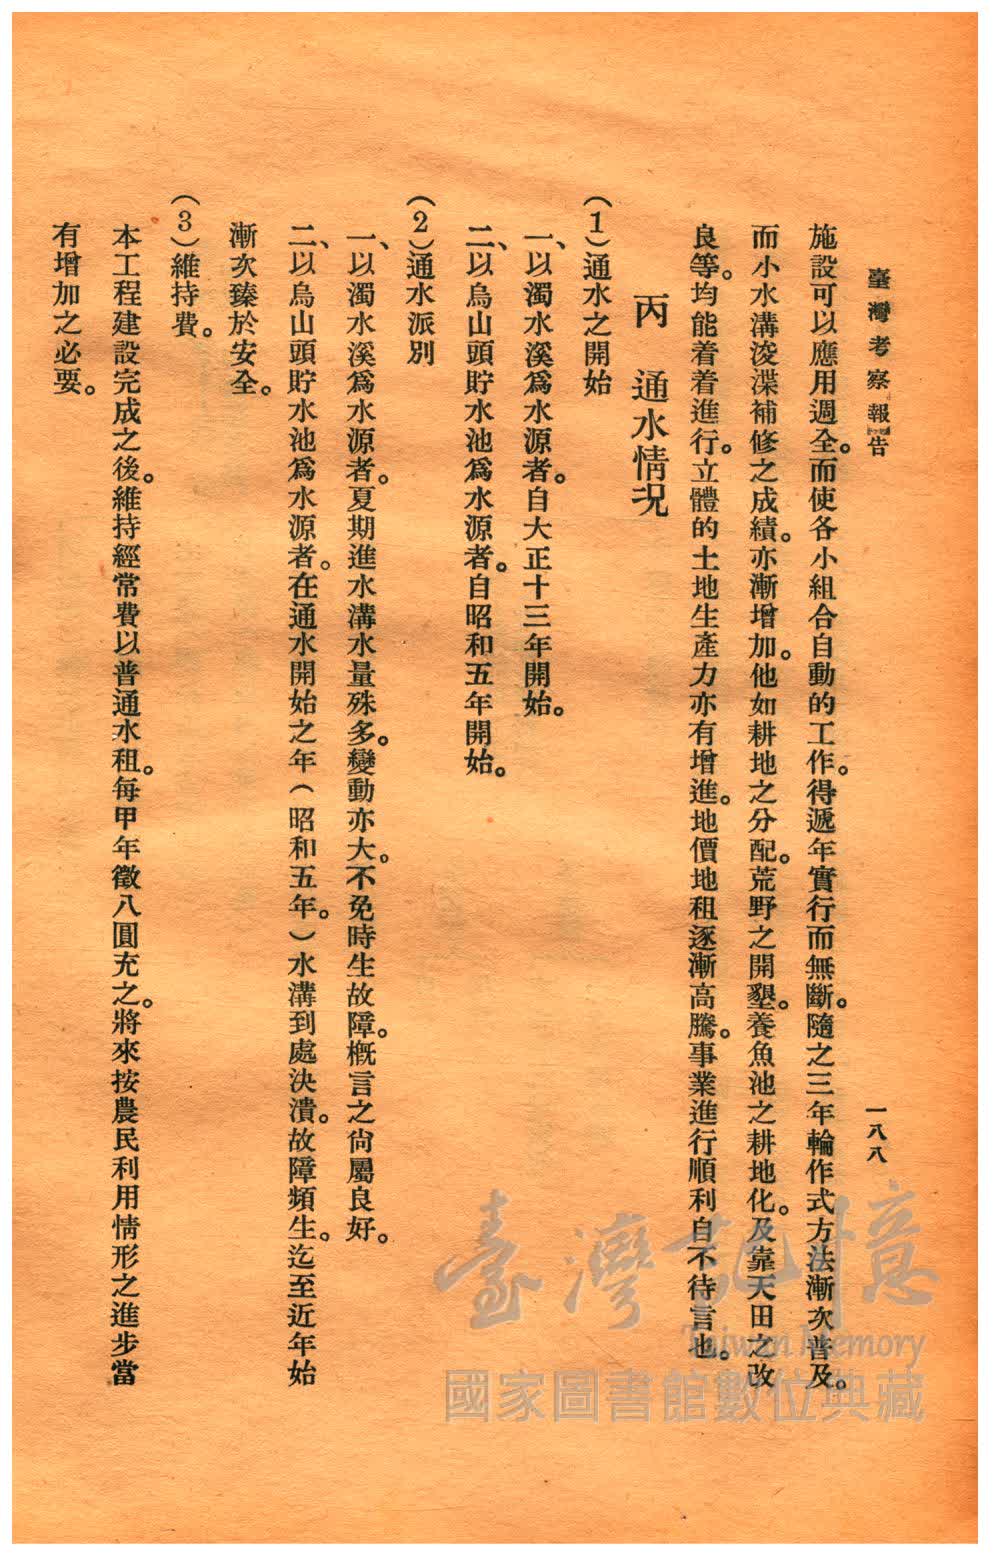 臺灣考察報告
一八八
施設可以應用週全。而使各小組合自動的工作。得遞年實行而無斷。隨之三年輪作式方法漸次普及。
而小水溝浚渫補修之成績。亦漸增加。他如耕地之分配。荒野之開墾。養魚池之耕地化。及靠天田之改
良等。均能着着進行。立體的土地生產力亦有增進。地價地租逐漸高騰。事業進行順利自不待言也。
丙　通水情況
(1)通水之開始
一、以濁水溪爲水源者。自大正十三年開始。
二、以烏山頭貯水池爲水源者。自昭和五年開始。
(2)通水派別
一、以濁水溪爲水源者。夏期進水溝水量殊多。變動亦大。不免時生故障。槪言之尙屬良好。
二、以烏山頭貯水池爲水源者。在通水開始之年(昭和五年。)水溝到處決潰。故障頻生。迄至近年始
漸次臻於安全。
(3)維持費。
本工程建設完成之後。維持經常費以普通水租。每甲年徵八圓充之。將來按農民利用情形之進步當
有增加之必要。
臺灣記憶
Taiwan Memory
國家圖書館數位典藏